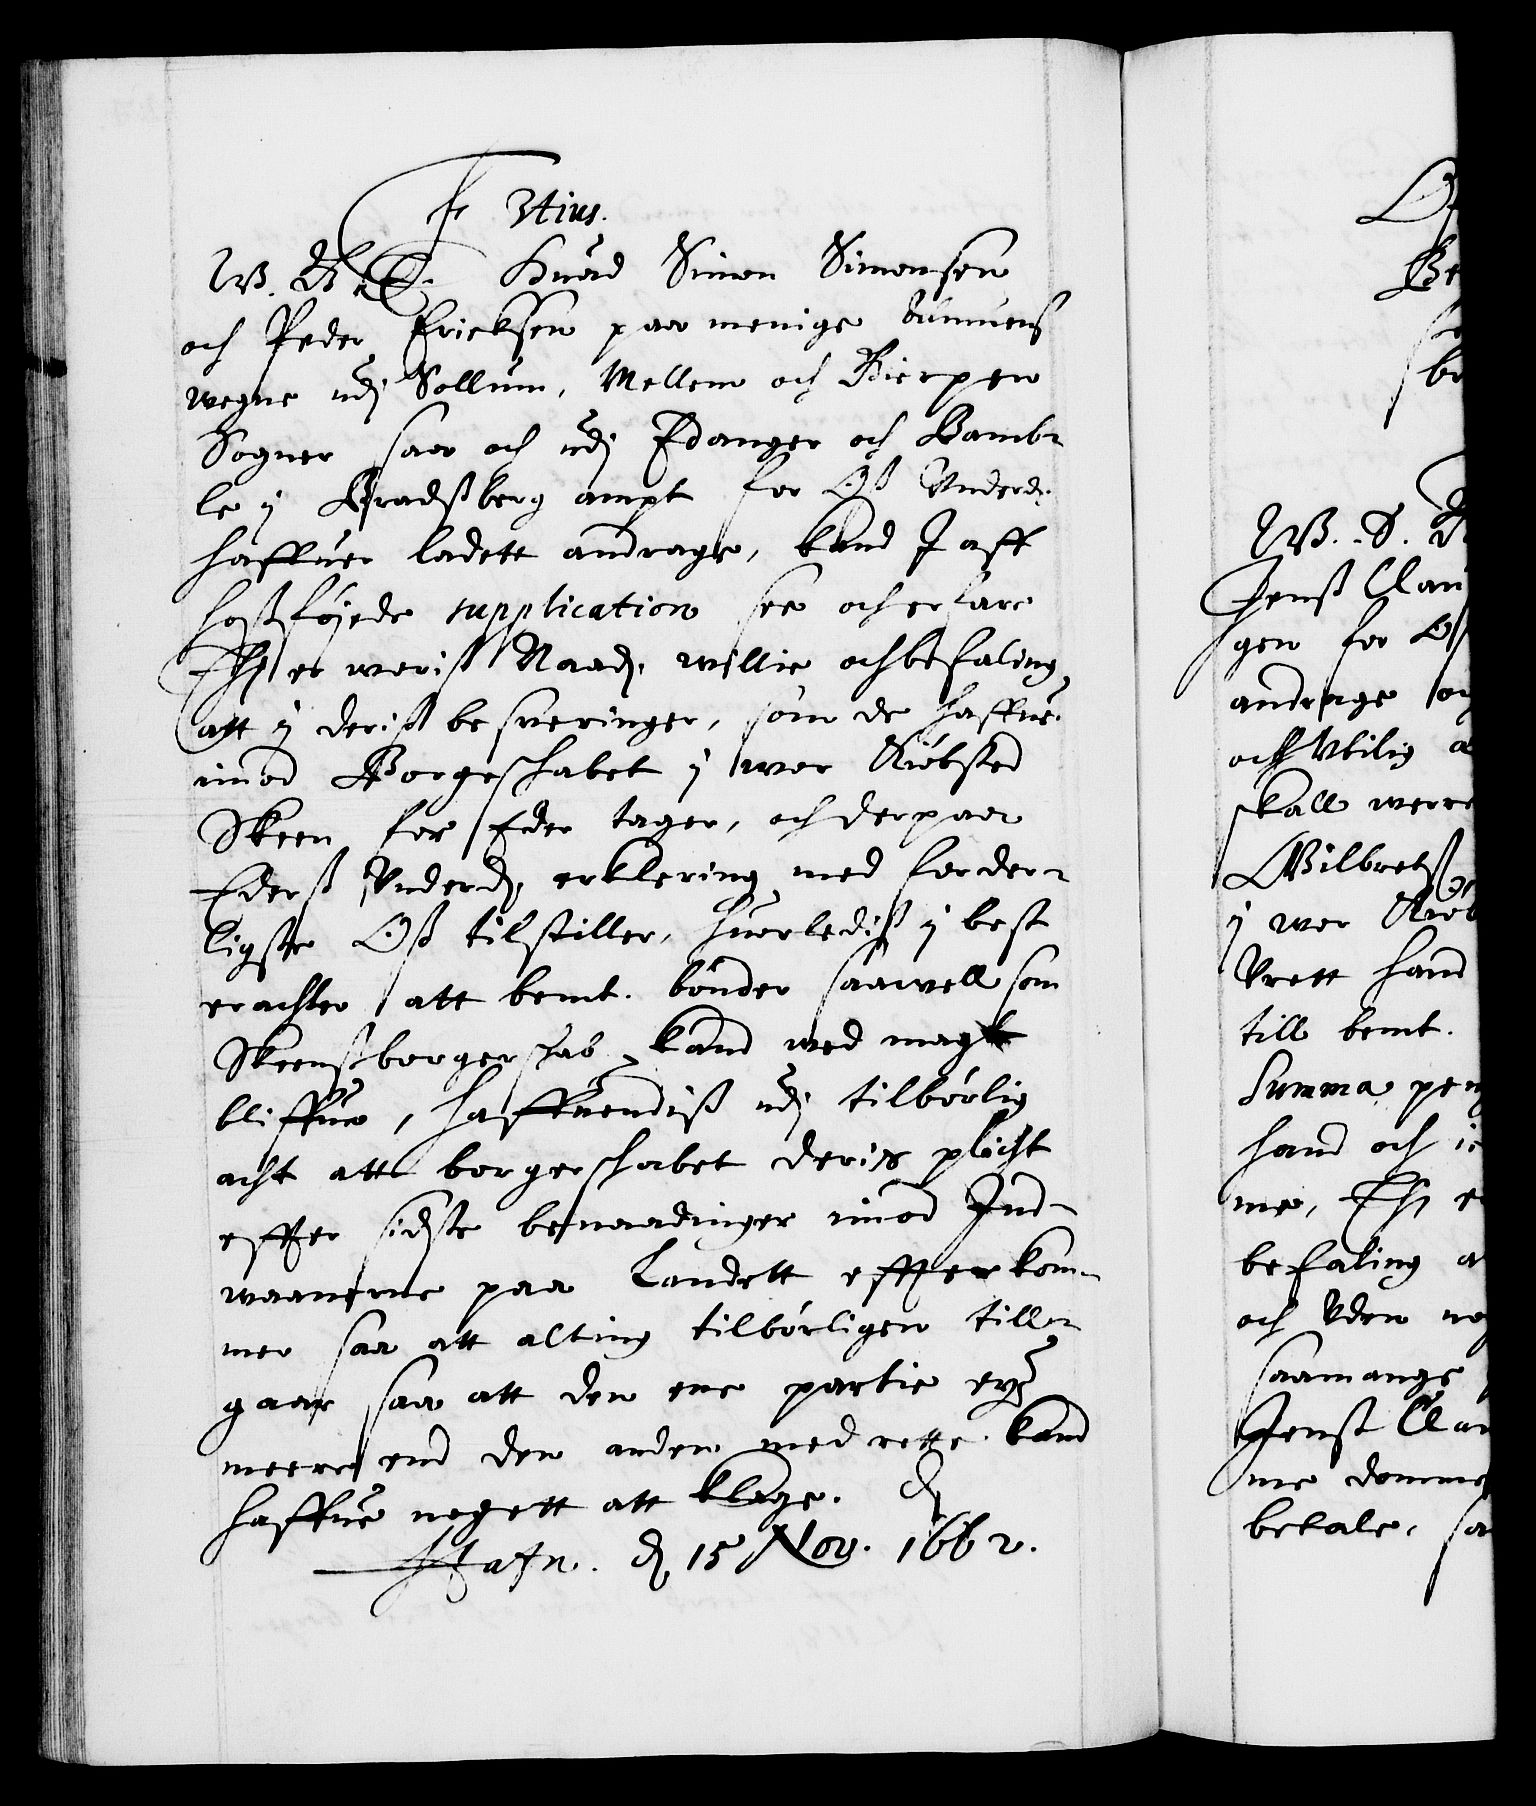 F 3tius.
W. G. T. Huad Simon Simonsen
och Peder Ericksen paa menige Allmuens
wegne udj Sollum, Mellem och Bierpen
Sogner saa och udj Edanger och Bamb-
le y Bradsberg ampt for Oß Underd:
haffuer ladett andrage, kand I aff
hoßføyede supplication see och erfare
Thj er woriß Naad: willie och befaling
att y deriß besweringer, som de haffue
imod Borgeschabet y wor Kiöbsted
Skeen for Eder tager, och derpaa
Ederß Underd: erklering med forder-
ligste Oß tilstiller, huorlediß y best
erachter att bemt. bönder saawell som
Skeenßborgerskab kand wed magt
bliffue, haffuendiß udj tilbörlig
acht att borgerschabet deris plicht
effter sidste benaadinger imod Ind-
waanerne paa Landett effterkom-
mer saa att alting tilbörligen till-
gaar saa att den ene partie ey
meere end den anden med rette kand
haffue nogett att klage. D
Hafn. d 15 Nov. 1662.
W. S.
Jenß Clau
gen for Oß
andrage
och Ubilig
skall werre
Wilbretß
y wor Kiöb
Urett hand
till bemt.
Summa pen
hand och
me, Thj e
befaling a
och Uden no
saamange
Jenß Clau
me domme
betale, sa